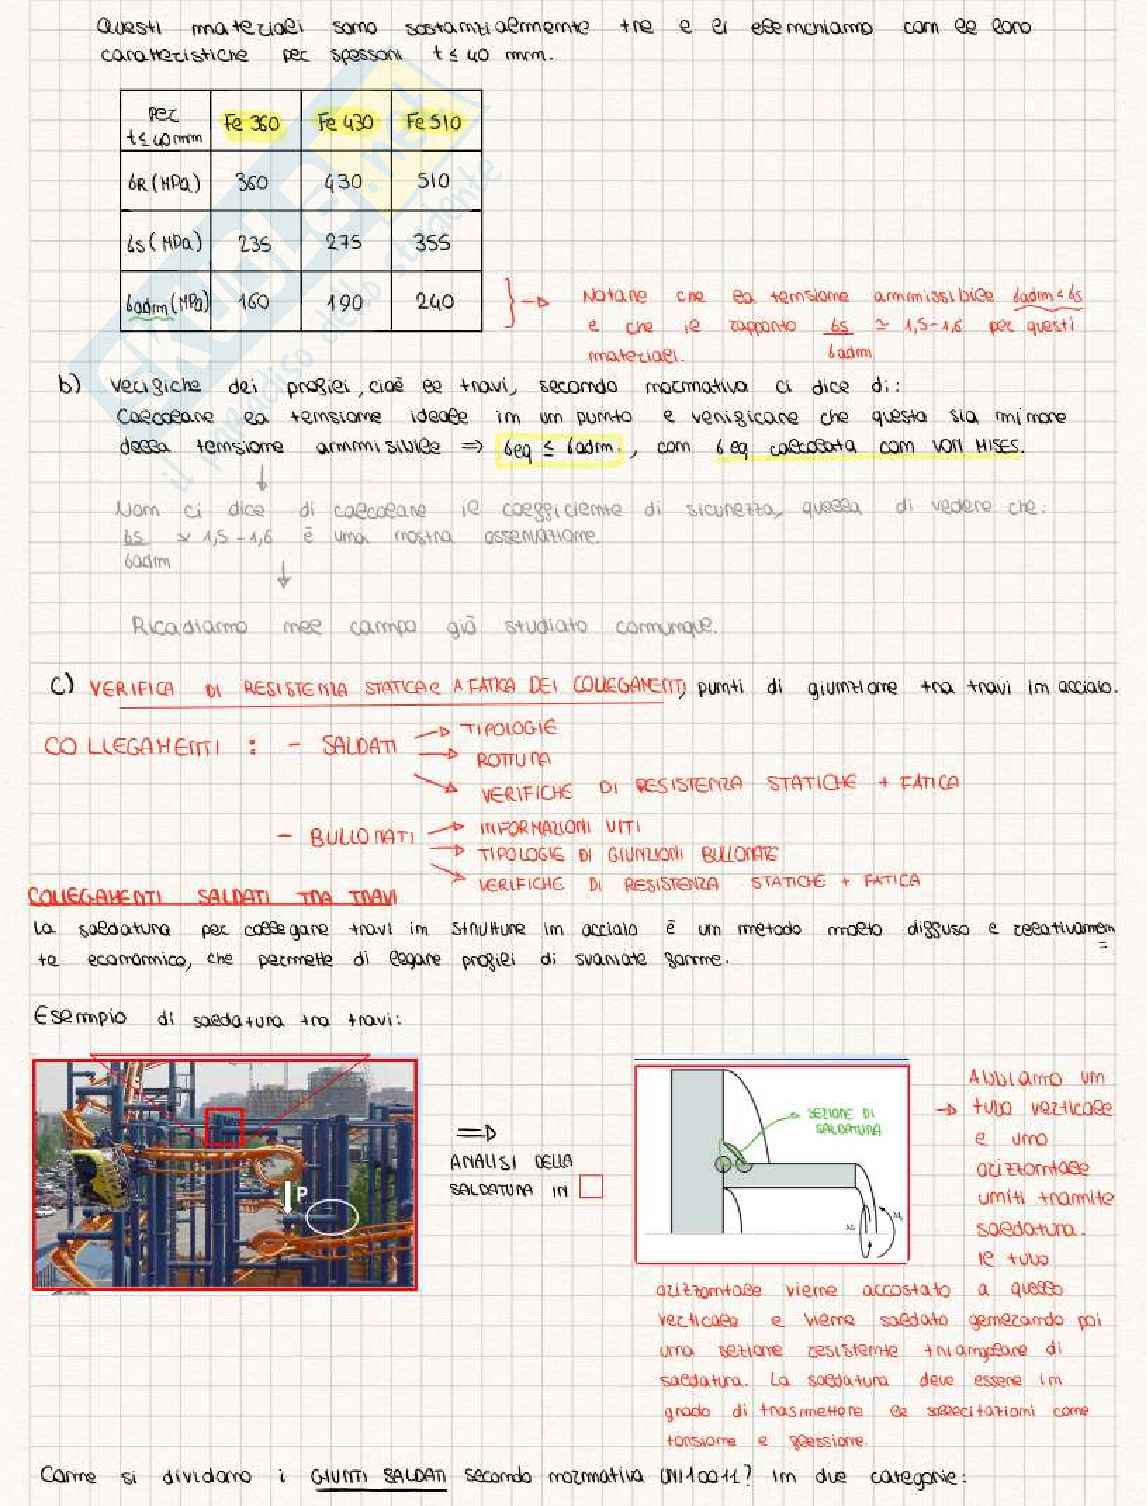 Questi materiali sono sostanzialmente tre e li elenchiamo con le loro
caratteristiche per spessori t ≤ 40 mm.
per t ≤ 40 mm | Fe 360 | Fe 430 | Fe 510
σR (MPa) | 360 | 430 | 510
σs (MPa) | 235 | 275 | 355
σadm (MPa) | 160 | 190 | 240
Notare che la tensione ammissibile σadm < σs
e che il rapporto σs/σadm ≃ 1,5-1,6 per questi
materiali.
b) verifiche dei profili, cioè le travi, secondo normativa ci dice di:
Calcolare la tensione ideale in un punto e verificare che questa sia minore
della tensione ammissibile ⇒ σeq ≤ σadm, con σeq calcolata con VON MISES.
Non ci dice di calcolare il coefficiente di sicurezza, quella di vedere che:
σs/σadm ≃ 1,5-1,6 è una nostra osservazione.
Ricadiamo nel campo già studiato comunque.
c) VERIFICA DI RESISTENZA STATICA e A FATICA DEI COLLEGAMENTI, punti di giunzione tra travi in acciaio.
COLLEGAMENTI : - SALDATI
TIPOLOGIE
ROTTURA
VERIFICHE DI RESISTENZA STATICHE + FATICA
- BULLONATI
INFORMAZIONI VITI
TIPOLOGIE DI GIUNZIONI BULLONATE
VERIFICHE DI RESISTENZA STATICHE + FATICA
COLLEGAMENTI SALDATI TRA TRAVI
La saldatura per collegare travi in strutture in acciaio è un metodo molto diffuso e relativamen
te economico, che permette di legare profili di svariate gamme.
Esempio di saldatura tra travi:
P
⇒
ANALISI DELLA
SALDATURA IN
SEZIONE DI
SALDATURA
Abbiamo un
tubo verticale
e uno
orizzontale
uniti tramite
saldatura.
Il tubo
orizzontale viene accostato a quello
verticale e viene saldato generando poi
una sezione resistente triangolare di
saldatura. La saldatura deve essere in
grado di trasmettere le sollecitazioni come
torsione e flessione.
Come si dividono i GIUNTI SALDATI secondo normativa UNI10011? In due categorie: